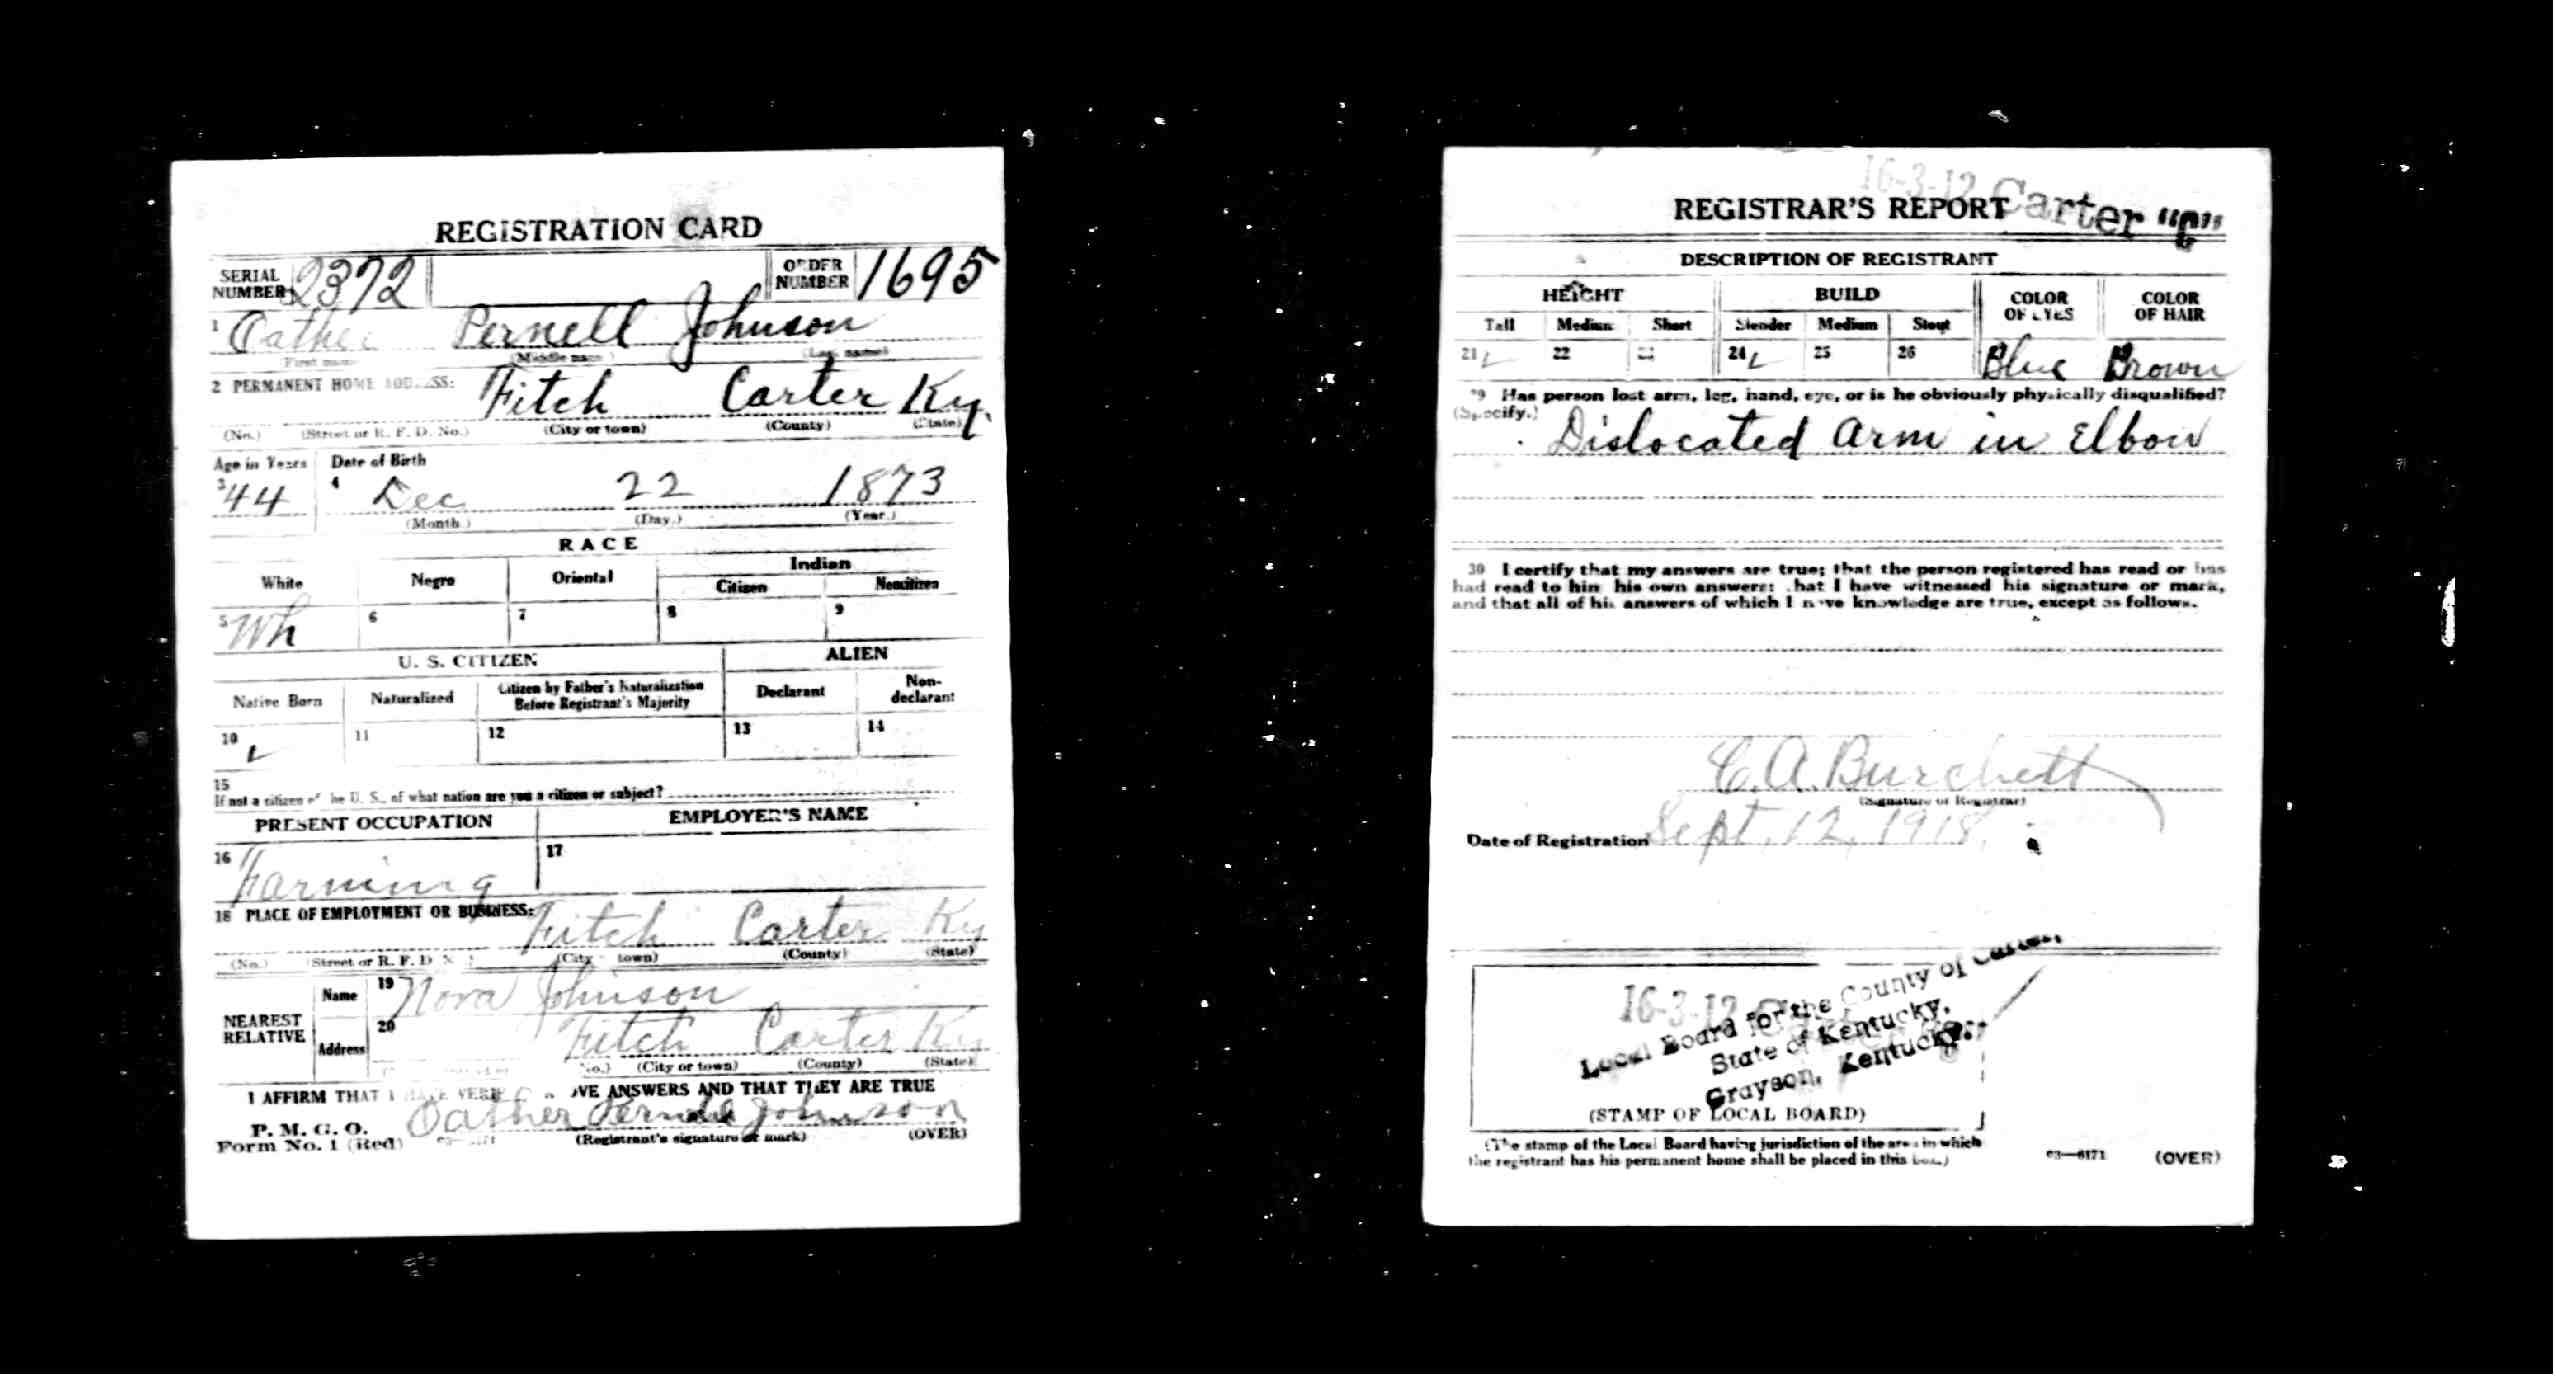 REGISTRATION CARD
SERIAL NUMBER 2372 ORDER NUMBER 1695
1 Oather Pernell Johnson
(First name) (Middle name) (Last name)
2 PERMANENT HOME ADDRESS:
Fitch Carter Ky.
(No.) (Street or R. F. D. No.) (City or town) (County) (State)
Age in Years Date of Birth
3 44 4 Dec 22 1873
(Month.) (Day.) (Year.)
RACE
White Negro Oriental Indian
Citizen Noncitizen
5 Wh 6 7 8 9
U. S. CITIZEN ALIEN
Native Born Naturalized Citizen by Father's Naturalization Before Registrant's Majority Declarant Non-declarant
10 ✓ 11 12 13 14
15
If not a citizen of the U. S., of what nation are you a citizen or subject?
PRESENT OCCUPATION EMPLOYER'S NAME
16 Farming 17
18 PLACE OF EMPLOYMENT OR BUSINESS:
Fitch Carter Ky
(No.) (Street or R. F. D. No.) (City or town) (County) (State)
NEAREST RELATIVE
Name 19 Nora Johnson
Address 20 Fitch Carter Ky
(No.) (City or town) (County) (State)
I AFFIRM THAT I HAVE VERIFIED ABOVE ANSWERS AND THAT THEY ARE TRUE
P. M. G. O.
Form No. 1 (Red) Oather Pernell Johnson
(Registrant's signature or mark) (OVER)
16-3-12 Carter "C"
REGISTRAR'S REPORT
DESCRIPTION OF REGISTRANT
HEIGHT BUILD COLOR OF EYES COLOR OF HAIR
Tall Medium Short Slender Medium Stout
21 ✓ 22 23 24 ✓ 25 26 Blue Brown
29 Has person lost arm, leg, hand, eye, or is he obviously physically disqualified?
(Specify.)
Dislocated arm in Elbow
30 I certify that my answers are true; that the person registered has read or has
had read to him his own answers; that I have witnessed his signature or mark,
and that all of his answers of which I have knowledge are true, except as follows.
C. A. Burchett
(Signature of Registrar)
Date of Registration Sept. 12, 1918
16-3-12
Local Board for the County of Carter,
State of Kentucky,
Grayson, Kentucky.
(STAMP OF LOCAL BOARD)
(The stamp of the Local Board having jurisdiction of the area in which
the registrant has his permanent home shall be placed in this box.)
03—6171 (OVER)